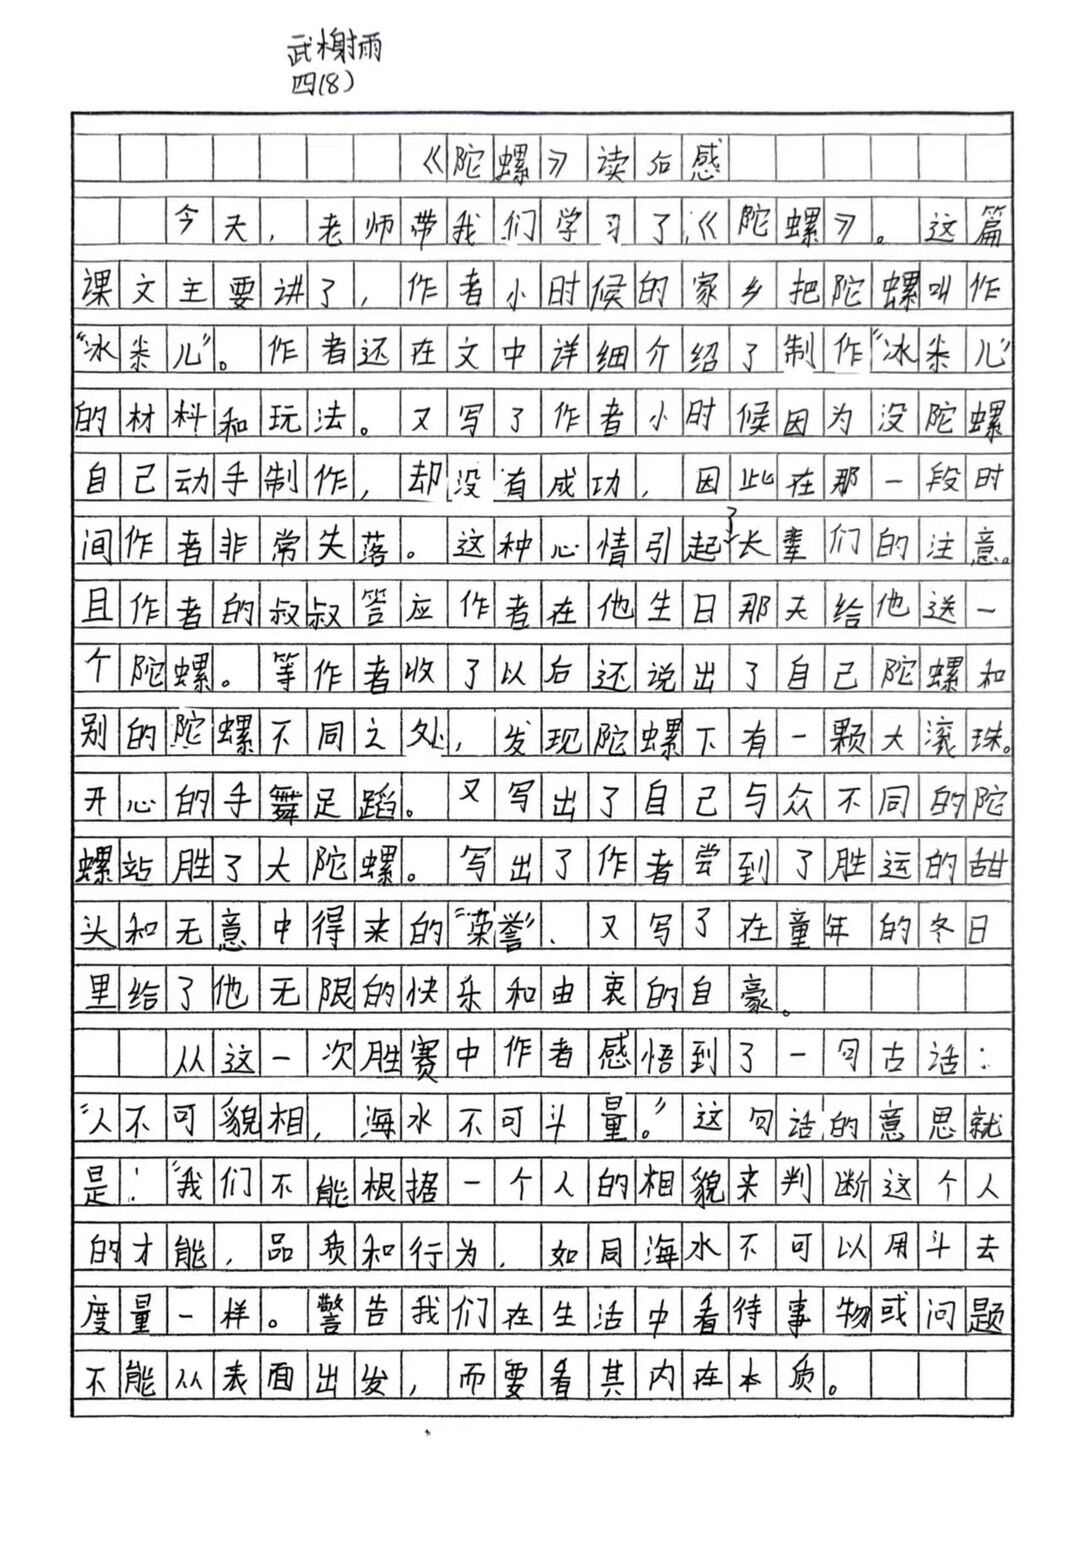 武榭雨
四(8)
《陀螺》读后感
今天，老师带我们学习了《陀螺》。这篇
课文主要讲了，作者小时候的家乡把陀螺叫作
“冰尜儿”。作者还在文中详细介绍了制作“冰尜儿”
的材料和玩法。又写了作者小时候因为没陀螺
自己动手制作，却没有成功，因此在那一段时
间作者非常失落。这种心情引起了长辈们的注意。
且作者的叔叔答应作者在他生日那天给他送一
个陀螺。等作者收了以后还说出了自己陀螺和
别的陀螺不同之处，发现陀螺下有一颗大滚珠。
开心的手舞足蹈。又写出了自己与众不同的陀
螺站胜了大陀螺。写出了作者尝到了胜运的甜
头和无意中得来的“荣誉”，又写了在童年的冬日
里给了他无限的快乐和由衷的自豪。
从这一次胜赛中作者感悟到了一句古话：
“人不可貌相，海水不可斗量。”这句话的意思就
是：“我们不能根据一个人的相貌来判断这个人
的才能，品质和行为，如同海水不可以用斗去
度量一样。警告我们在生活中看待事物或问题
不能从表面出发，而要看其内在本质。